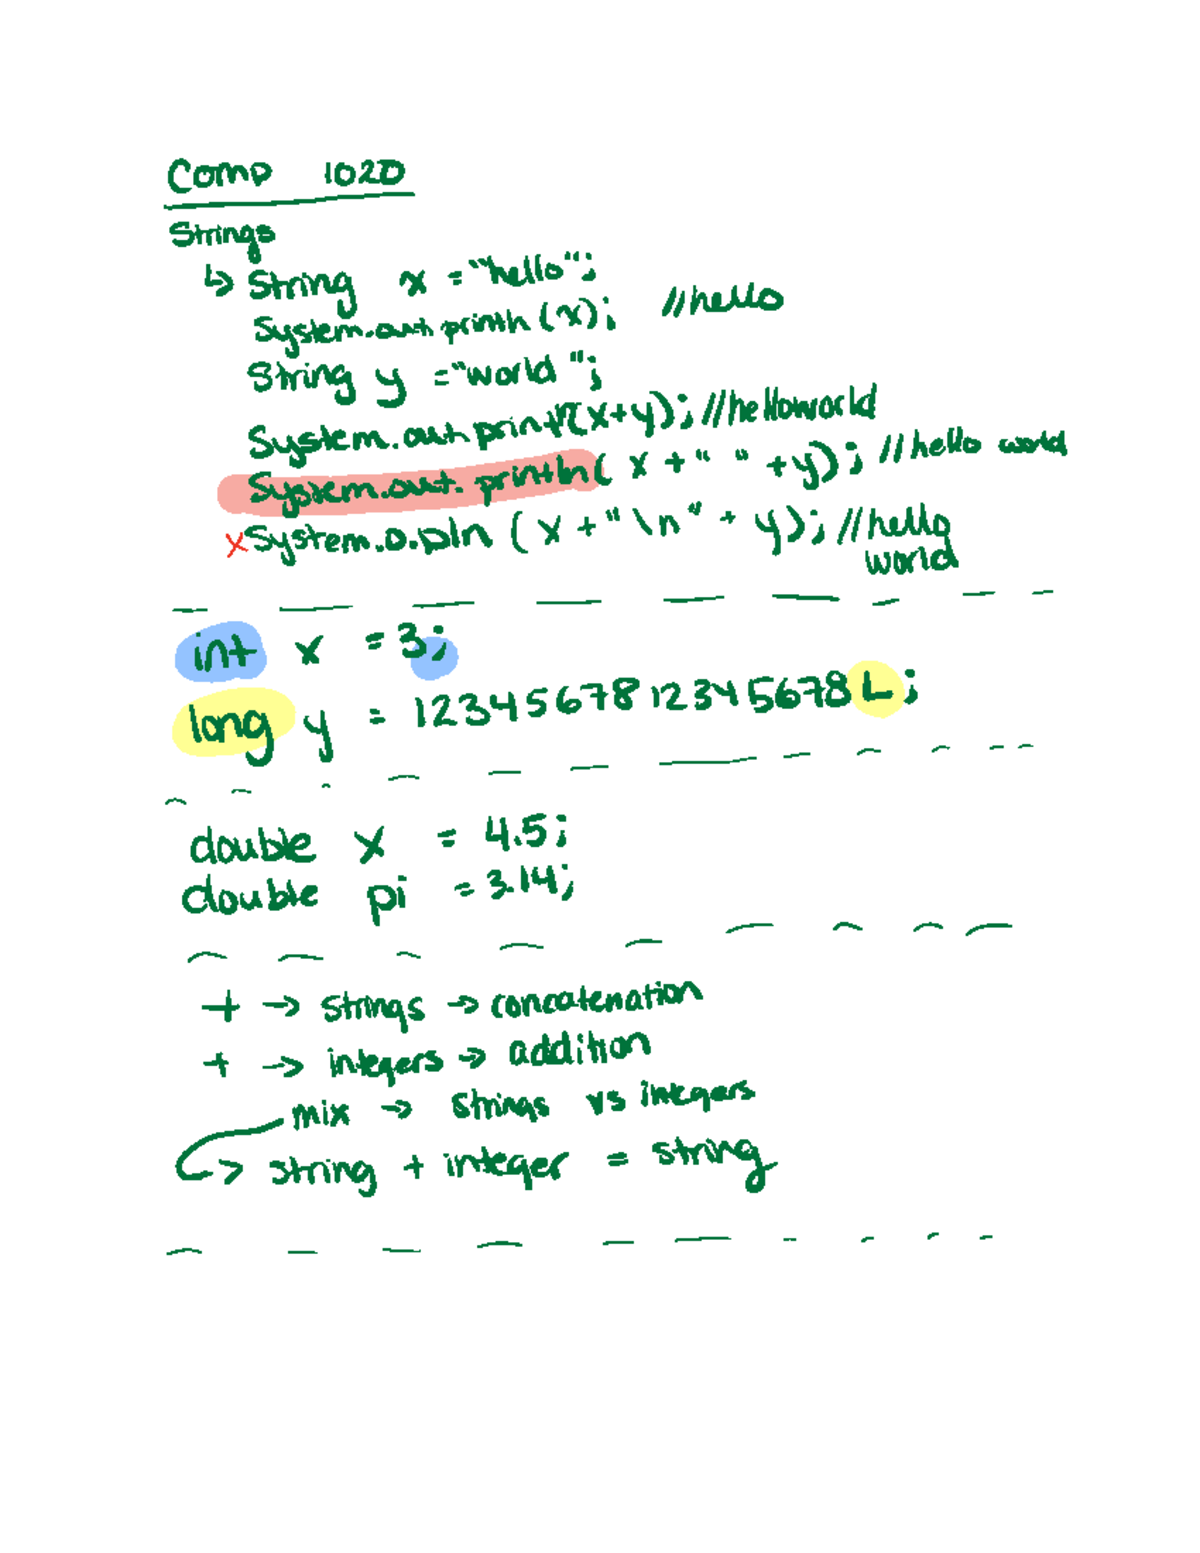 Comp 1020
Strings
↳ String x = "hello";
System.out.println(x); //hello
String y = "world";
System.out.println(x+y); //helloworld
System.out.println(x + " " + y); //hello world
x System.o.pln (x + "\n" + y); //hello
world
int x = 3;
long y = 1234567812345678L;
double x = 4.5;
double pi = 3.14;
+ → strings → concatenation
+ → integers → addition
mix → strings vs integers
↳ string + integer = string